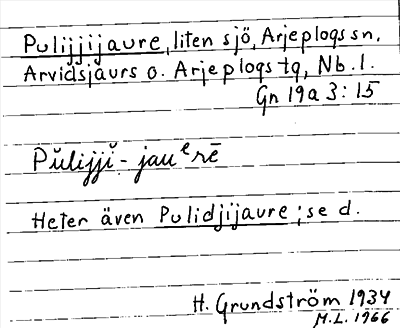 Pulijjijaure, liten sjö, Arjeplogs sn,
Arvidsjaurs o. Arjeplogs tg, Nb. l.
Gn 19a 3:15
Pŭlijjĭ-jauᵉrē
Heter även Pulidjijaure; se d.
H. Grundström 1934
M.L. 1966